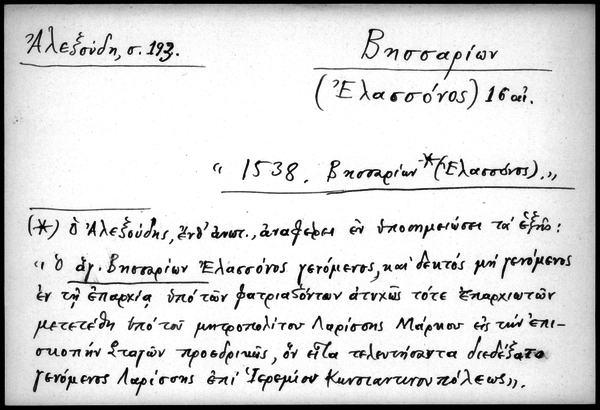 Ἀλεξούδη, σ. 193.
Βησσαρίων
(Ἐλασσόνος) 16 αἰ.
" 1538. Βησσαρίων * (Ἐλασσόνος). „
(*) Ὁ Ἀλεξούδης, ἔνθ' ἀνωτ., ἀναφέρει ἐν ὑποσημειώσει τὰ ἑξῆς:
" Ὁ ἅγ. Βησσαρίων Ἐλασσόνος γενόμενος, καὶ δεκτὸς μὴ γενόμενος
ἐν τῇ ἐπαρχίᾳ ὑπὸ τῶν φατριαζόντων ἀτυχῶς τότε ἐπαρχιωτῶν
μετετέθη ὑπὸ τοῦ μητροπολίτου Λαρίσσης Μάρκου εἰς τὴν ἐπι-
σκοπὴν Σταγῶν προεδρικῶς, ὃν εἶτα τελευτήσαντα διεδέξατο
γενόμενος Λαρίσσης ἐπὶ Ἱερεμίου Κωνσταντινουπόλεως„.